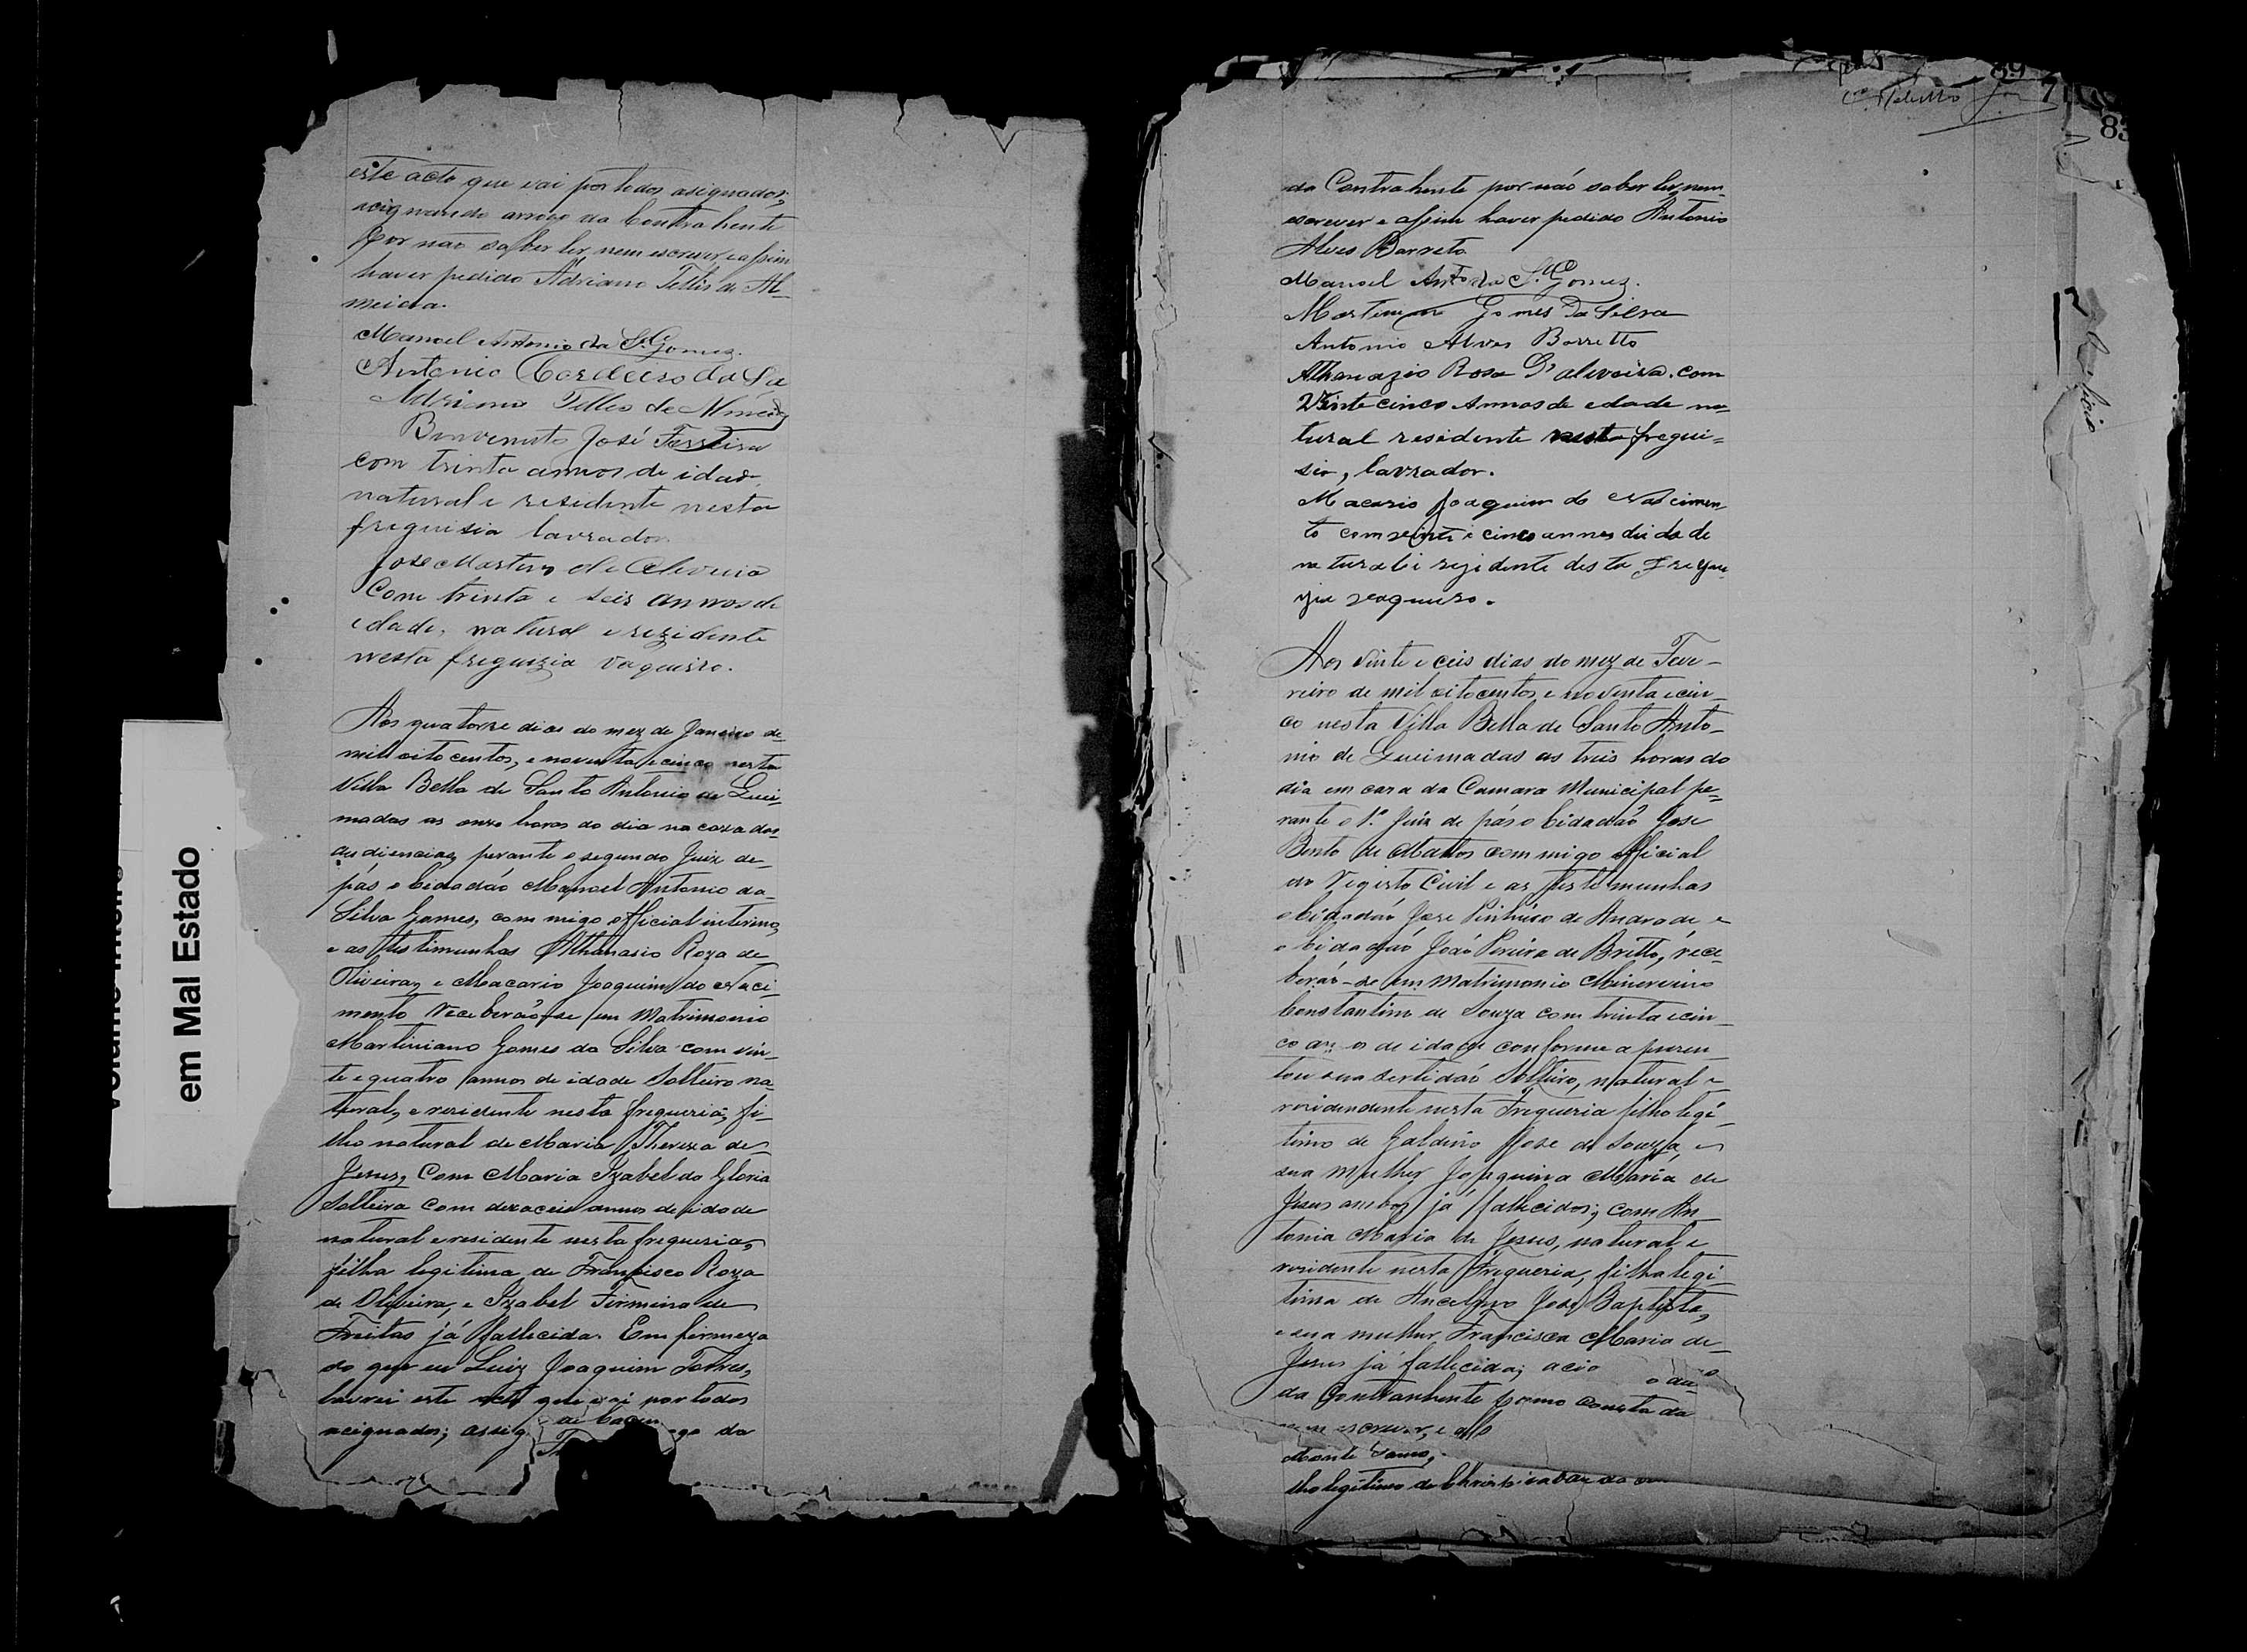 este acto que vai por todos asignados,
acignando arrogo da Contrahente
por não saber ler, nem escrever, e assim
haver pedido Adriano Telles de Al-
meida.
Manoel Antonio da S.ª Gomes.
Antonio Cordeiro da Sa
Adriano Telles de Almeida
Benvenuto José Ferreira
com trinta annos de idade,
natural e residente nesta
freguisia lavrador
José Martins de Oliveira
Com trinta e seis annos de
edade, natural e rezidente
nesta freguezia vaqueiro.
Aos quatorze dias do mez de Janeiro de
mil oito centos, e noventa e cinco nesta
Villa Bella de Santo Antonio de Quei-
madas as onze horas do dia na caza das
audiencias, perante o segundo Juiz de
pás o Cidadão Manoel Antonio da
Silva Gomes, com migo official interino,
e as testimunhas Athanasio Roza de
Oliveira, e Macario Joaquim do Naci-
mento Receberão-se em Matrimonio
Martiniano Gomes da Silva com vin-
te e quatro annos de idade Solteiro na-
tural, e residente nesta freguesia, fi-
lho natural de Maria Thereza de
Jesus, Com Maria Izabel da Gloria
Solteira com dezaceis annos de idade
natural e residente nesta freguesia,
filha legitima de Francisco Roza
de Oliveira, e Izabel Firmina de
Freitas já fallecida. Em firmeza
do que eu Luiz Joaquim Torres,
lavrei este acto que vai por todos
acignados; assig
da
89
7
83
da Contrahente por não saber ler, nem
escrever e assim haver pedido Antonio
Alves Barreto
Manoel Ant.º da S.ª Gomes.
Martiniano Gomes da Silva
Antonio Alves Barretto
Athanazio Rosa D'oliveira. com
Vinte cinco Annos de edade na-
tural residente nesta fregui=
sia, lavrador.
Macario Joaquim do Nascimen
to com vinte e cinco annos di da de
natural i rezidente desta Fregue
zia vaqueiro.
Aos vinte e ceis dias do mez de Feve-
reiro de mil oitocentos e noventa e cin-
co nesta Villa Bella de Santo Anto-
nio de Queimadas as treis horas do
dia em caza da Camara Municipal pe-
rante o 1.º Juiz de pás o Cidadão José
Bento de Mattos com migo Official
do Registo Civil e as testemunhas
o Cidadão José Pinheiro de Andrade e
o Cidadão João Pereira de Britto, rece-
berão-se em Matrimonio Minervino
Constantino de Souza com trinta e cin-
co annos de idade conforme apresen-
tou sua sertidão Solteiro, natural e
residendente nesta Freguesia filho legi-
timo de Galdino José de Souza, e
sua mulher Joaquina Maria de
Jesus ambos já fallecidos; com An-
tonia Maria de Jesus, natural e
residente nesta Freguesia, filha legi-
tima de Ancelmo José Baptista,
e sua mulher Francisca Maria de
Jesus já fallecida;
da Contrahente como consta da
nem escrever, e
Monte Santo,
lho legitimo de
em Mal Estado